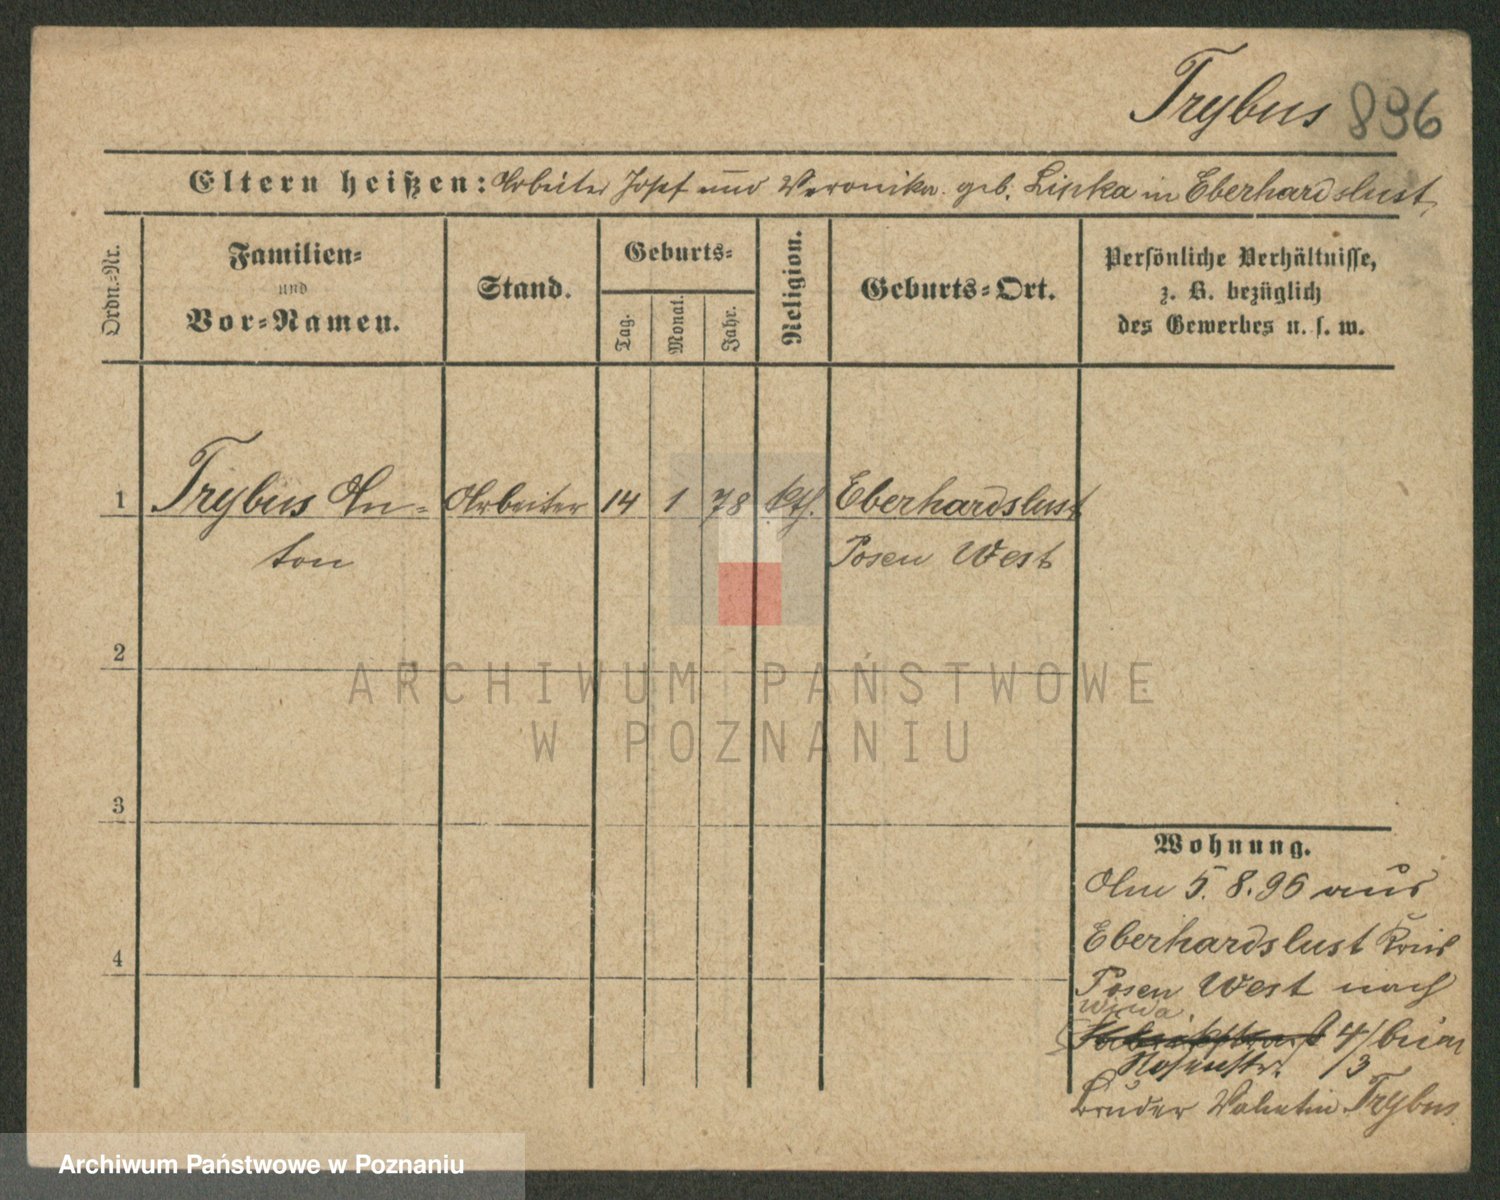 Trybus 896
Eltern heißen: Arbeiter Josef und Veronika geb. Lipka in Eberhardslust,
Ordn.-Nr.
Familien-
und
Vor-Namen.
Stand.
Geburts-
Tag.
Monat.
Jahr.
Religion.
Geburts-Ort.
Persönliche Verhältnisse,
z. B. bezüglich
des Gewerbes u. s. w.
1 Trybus An- Arbeiter 14 1 78 kth. Eberhardslust
ton Posen West
2
3
4
Wohnung.
Am 5.8.96 aus
Eberhardslust Kreis
Posen West nach
Wilda
4/ beim
Rosenstr. 13
Bruder Valentin Trybus
ARCHIWUM PAŃSTWOWE
W POZNANIU
Archiwum Państwowe w Poznaniu